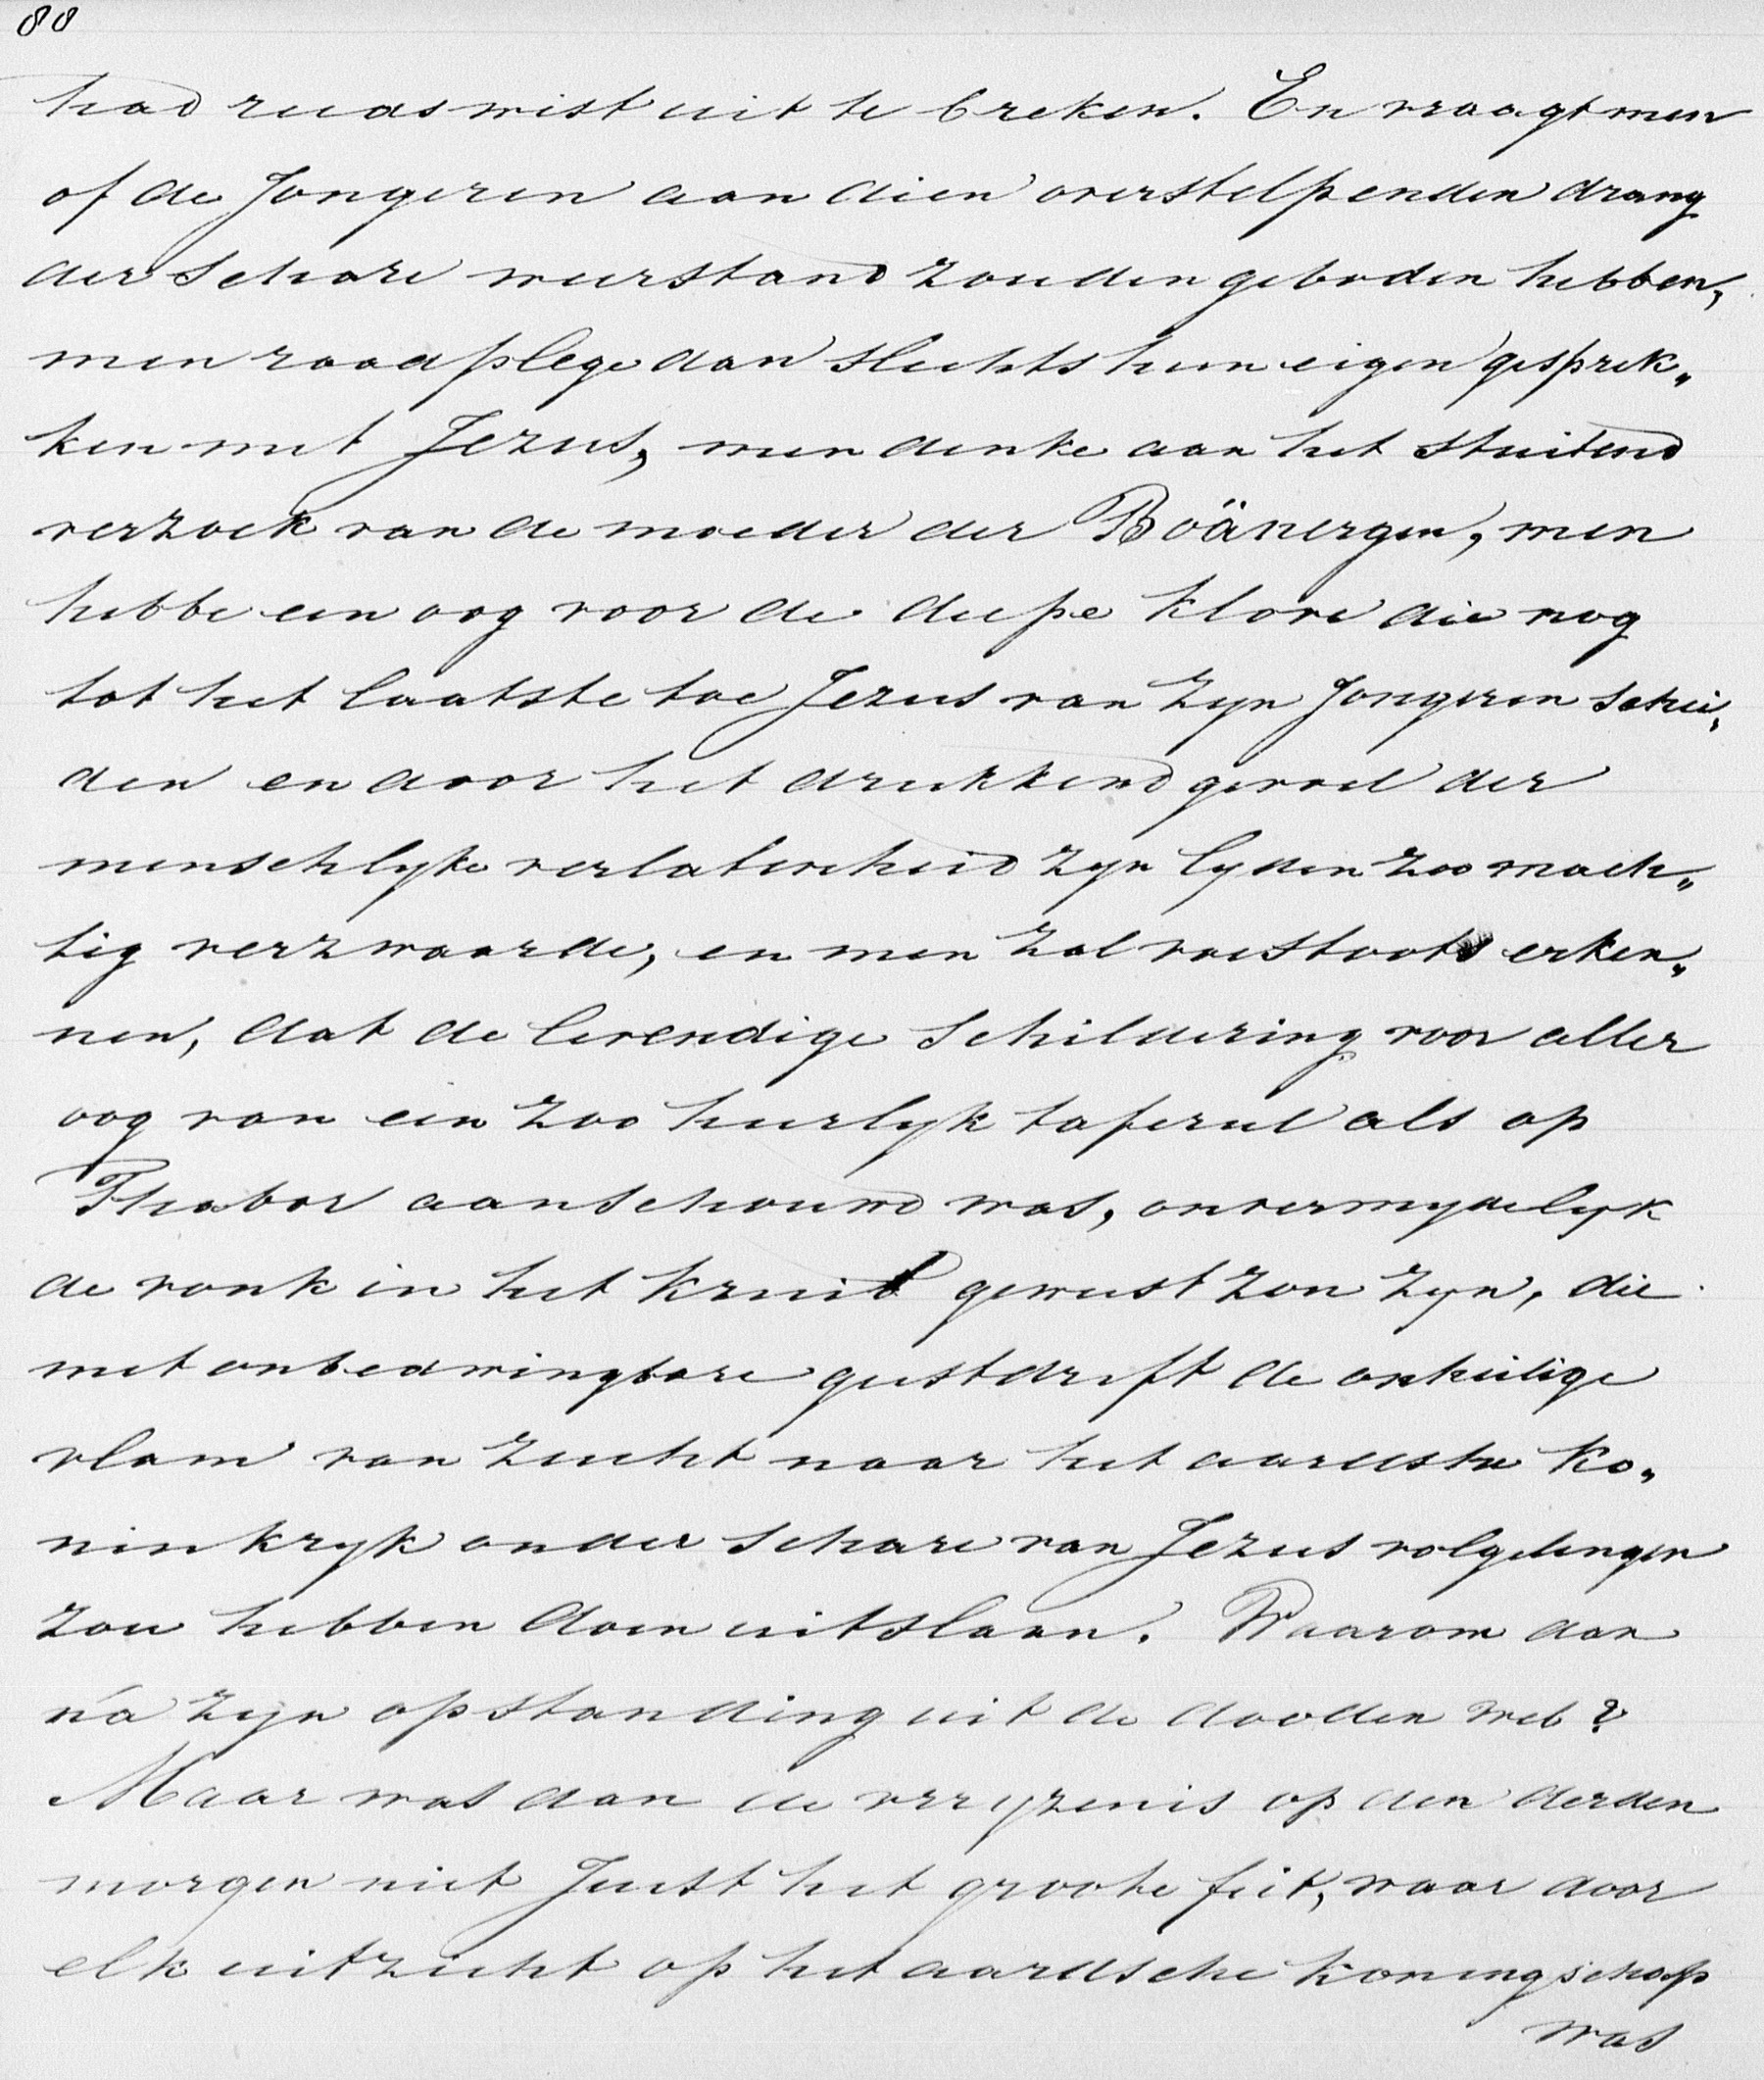 88
had reeds wist uit te breken. En vraagt men
of de Jongeren aan dien overstelpenden drang
der schare weerstand zouden geboden hebben,
men raadplege dan slechts hun eigen gesprek„
ken met Jezus, men denke aan het stuitend
verzoek van de moeder der Boänergen, men
hebbe een oog voor de diepe klove die nog
tot het laatste toe Jezus van zyn Jongeren schei„
den en door het drukkend gevoel der
menschlyke verlatenheid zyn lyden zoo mach„
tig verzwaarde, en men zal voetstoots erken„
nen, dat de levendige schildering voor aller
oog van een zoo heerlyk tafereel als op
Thabor aanschouwd was, onvermydelyk
de vonk in het kruid geweest zou zyn, die
met onbedwingbare geestdrift de onheilige
vlam van zucht naar het aardsche Ko„
ninkryk onder schare van Jezus volgelingen
zou hebben doen uitslaan. Waarom dan
ná zyn opstanding uit de dooden wel?
Maar was dan de verryzenis op den derden
morgen niet Juist het groote feit, waar door
elk uitzicht op het aardsche koningschap
was